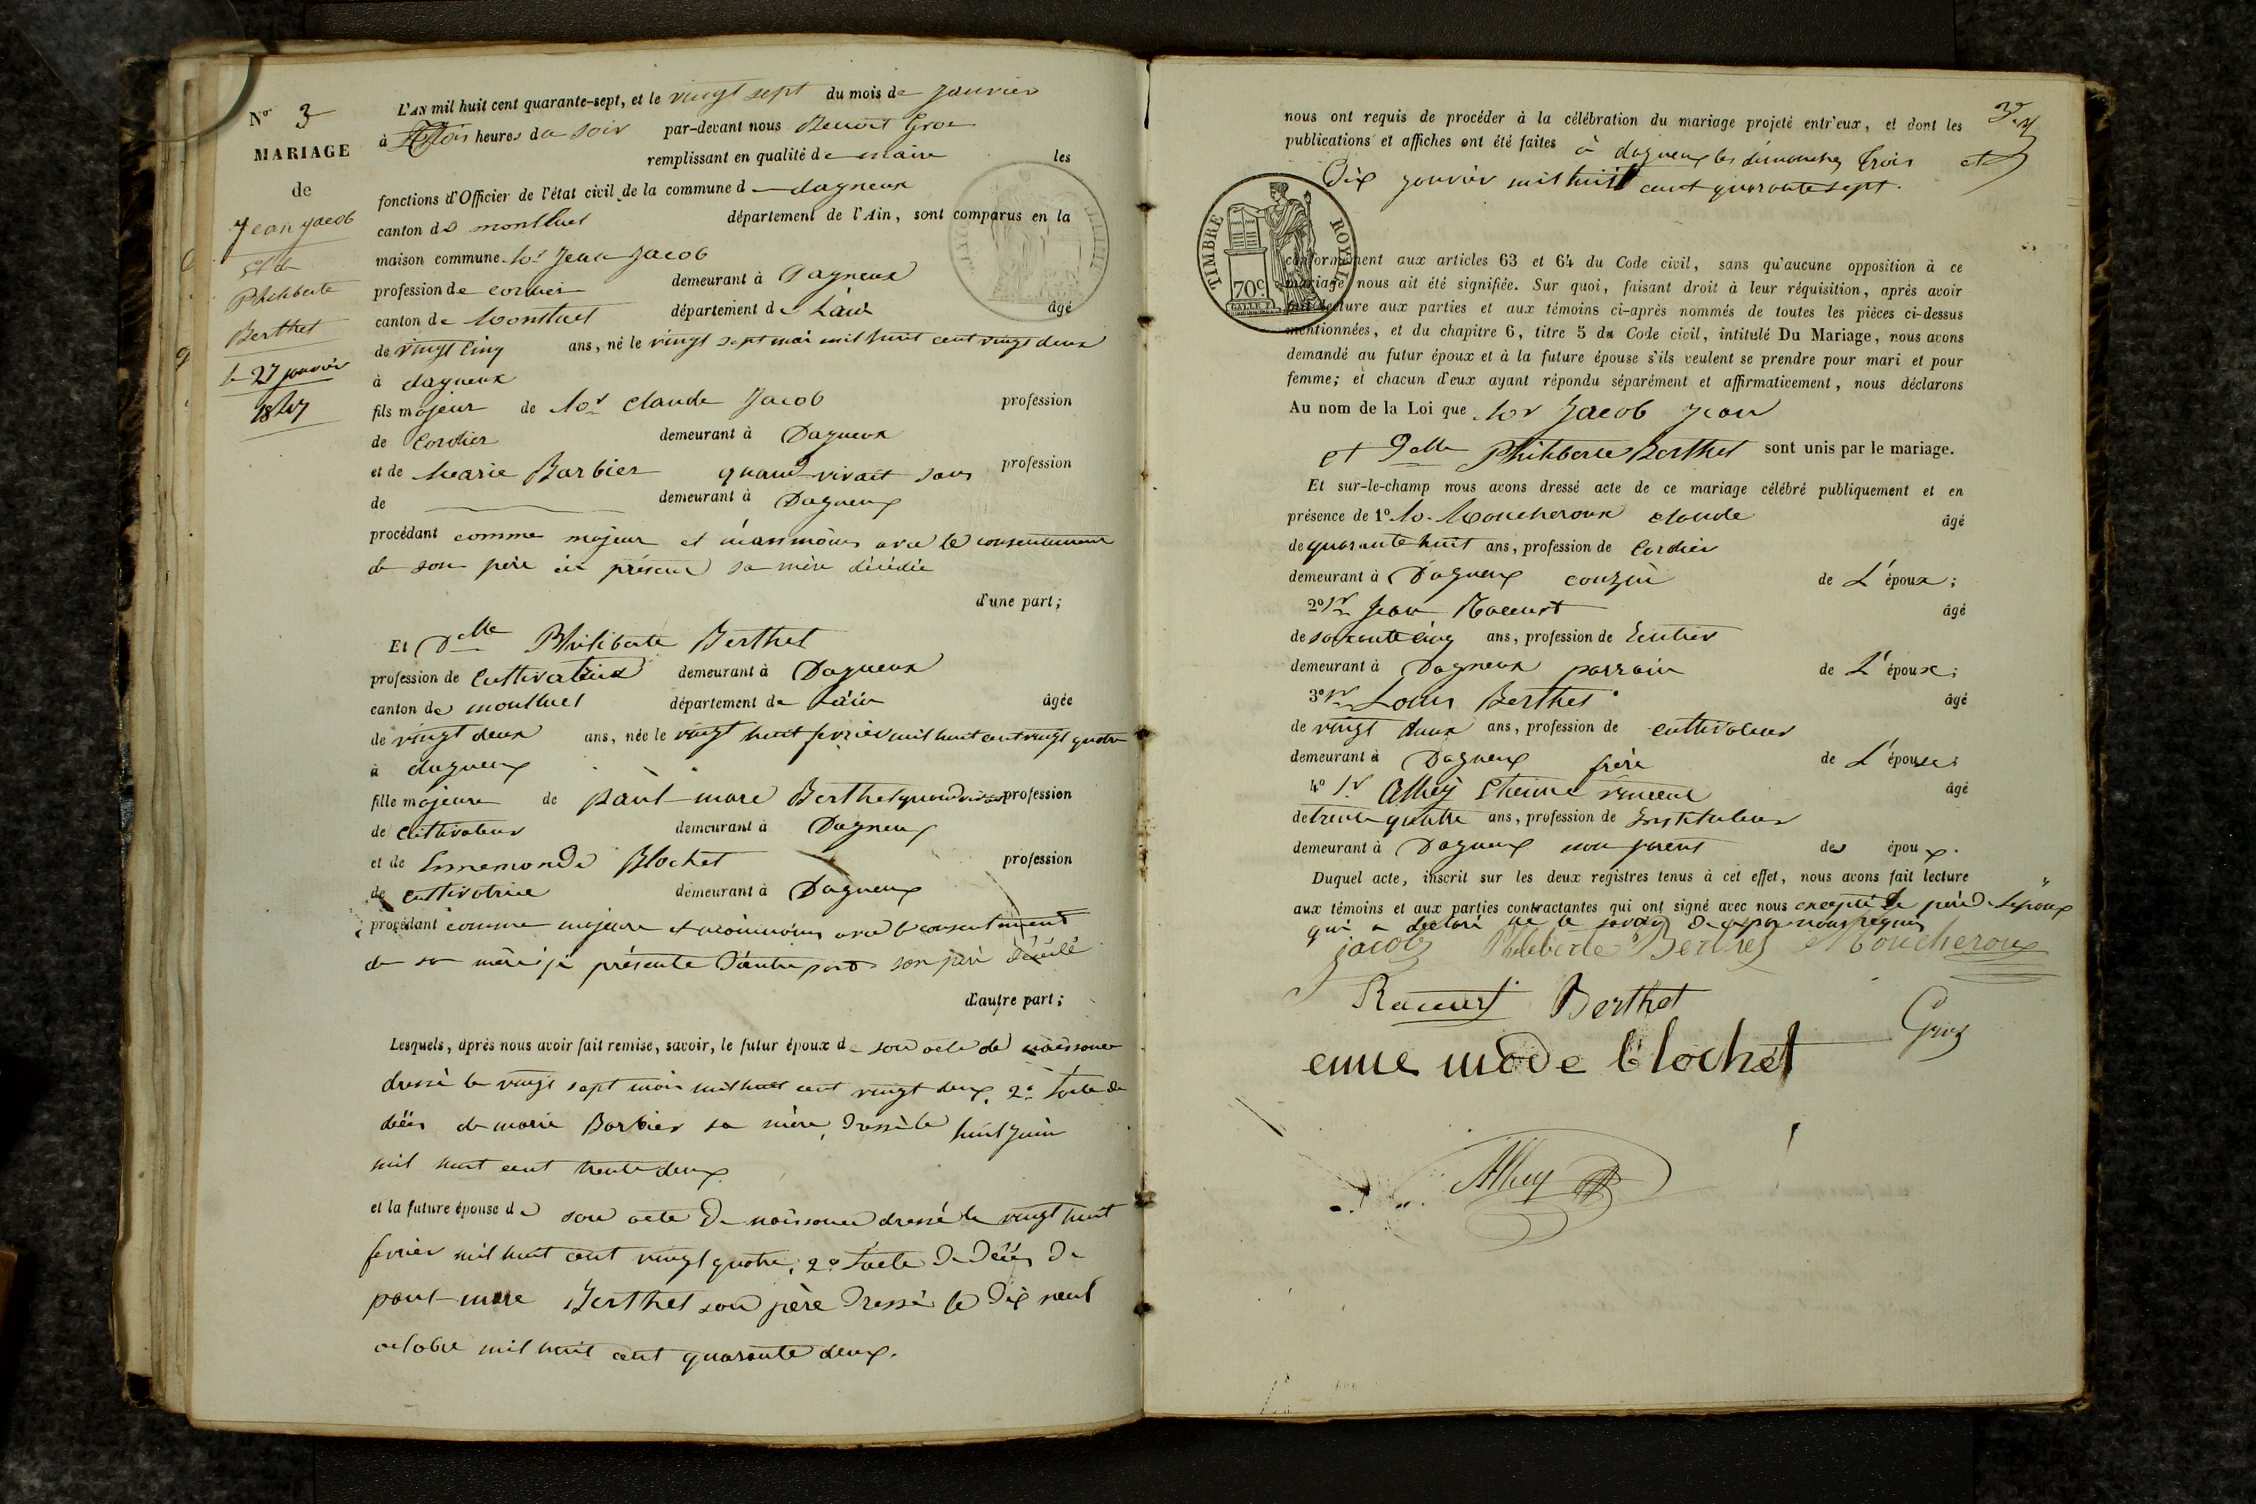 No 3
MARIAGE
de
Jean Jacob
et de
Philiberte
Berthet
le 27 janvier
1847
L'AN mil huit cent quarante-sept, et le vingt sept du mois de Janvier
à trois heures du soir par-devant nous Benoit Gros
remplissant en qualité de maire les
fonctions d'Officier de l'état civil de la commune de dagneux
canton de montluel département de l'Ain, sont comparus en la
maison commune Sr Jean Jacob
profession de cordier demeurant à Dagneux
canton de Montluel département de L'ain âgé
de vingt cinq ans, né le vingt sept mai mil huit cent vingt deux
à dagneux
fils majeur de Sr Claude Jacob profession
de Cordier demeurant à Dagneux
et de Marie Barbier quand vivait sans profession
de demeurant à Dagneux
procédant comme majeur et néanmoins avec le consentement
de son père ici présent sa mère décédée
d'une part;
Et Delle Philiberte Berthet
profession de Cultivatrice demeurant à Dagneux
canton de montluel département de L'ain âgée
de vingt deux ans, née le vingt huit fevrier mil huit cent vingt quatre
à dagneux
fille majeure de paul-marc Berthet quand vivait profession
de Cultivateur demeurant à Dagneux
et de Ennemonde Blochet profession
de cultivatrice demeurant à Dagneux
procédant comme majeure et néanmoins avec le consentement
de sa mère ici présente D'autre part son père décédé
d'autre part;
Lesquels, après nous avoir fait remise, savoir, le futur époux de son acte de naissance
dressé le vingt sept mai mil huit cent vingt deux, 2o l'acte de
décès de marie Barbier sa mère, dressé le huit juin
mil huit cent trente deux.
et la future épouse de son acte de naissance dressé le vingt huit
fevrier mil huit cent vingt quatre, 2o l'acte de décès de
paul-marc Berthet son père Dressé le Dix neuf
octobre mil huit cent quarante deux.
3
nous ont requis de procéder à la célébration du mariage projeté entr'eux, et dont les
publications et affiches ont été faites à dagneux les dimanches trois et
Dix janvier mil huit cent quarante sept.
TIMBRE ROYAL
70c
conformément aux articles 63 et 64 du Code civil, sans qu'aucune opposition à ce
mariage nous ait été signifiée. Sur quoi, faisant droit à leur réquisition, après avoir
fait lecture aux parties et aux témoins ci-après nommés de toutes les pièces ci-dessus
mentionnées, et du chapitre 6, titre 5 du Code civil, intitulé Du Mariage, nous avons
demandé au futur époux et à la future épouse s'ils veulent se prendre pour mari et pour
femme; et chacun d'eux ayant répondu séparément et affirmativement, nous déclarons
Au nom de la Loi que Sr Jacob Jean
et Delle Philiberte Berthet sont unis par le mariage.
Et sur-le-champ nous avons dressé acte de ce mariage célébré publiquement et en
présence de 1o Sr Moucheroux claude âgé
de quarante huit ans, profession de Cordier
demeurant à Dagneux couzin de L'époux;
2o Sr Jean Racurt âgé
de soixante cinq ans, profession de Rentier
demeurant à Dagneux parrain de L'époux;
3o Sr Louis Berthet âgé
de vingt deux ans, profession de cultivateur
demeurant à Dagneux frère de L'épouse;
4o Sr Alhéy Etienne vincent âgé
de trente quatre ans, profession de Instituteur
demeurant à Dagneux non parent des époux.
Duquel acte, inscrit sur les deux registres tenus à cet effet, nous avons fait lecture
aux témoins et aux parties contractantes qui ont signé avec nous excepté le père de L'époux
qui a déclaré ne le savoir de ce par nous requis
jacob Philiberte Berthet Moucheroux
Racurt Berthet Gros
enne mode blochet
Alhey